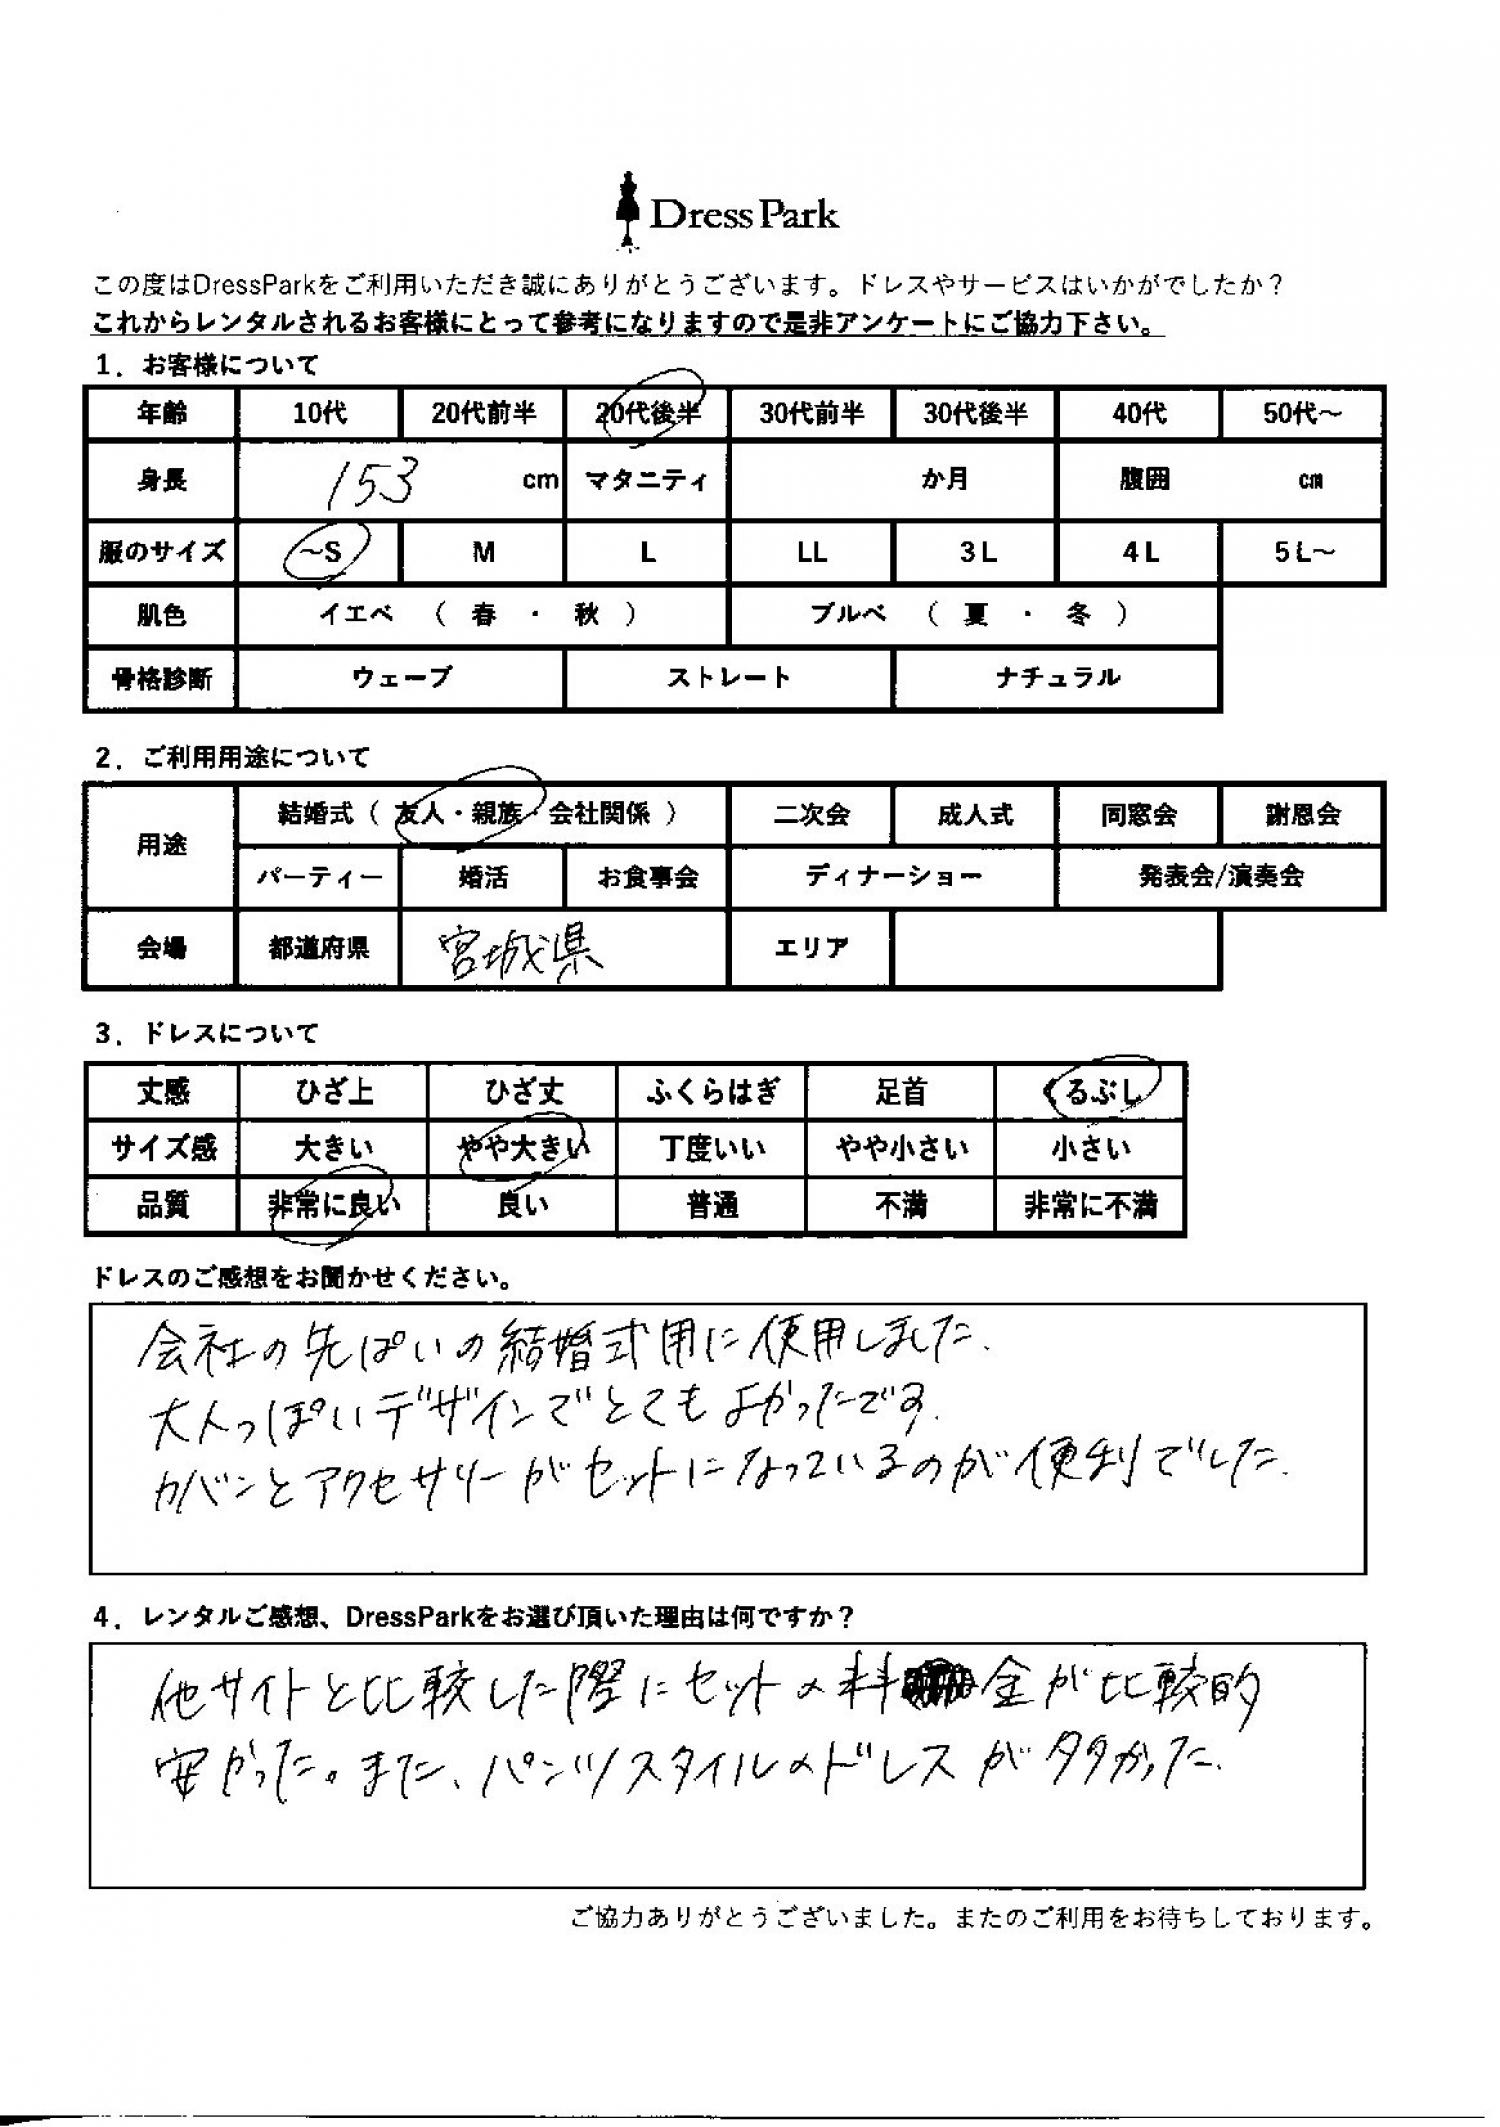 Dress Park
この度はDressParkをご利用いただき誠にありがとうございます。ドレスやサービスはいかがでしたか？
これからレンタルされるお客様にとって参考になりますので是非アンケートにご協力下さい。
1．お客様について
年齢 10代 20代前半 20代後半 30代前半 30代後半 40代 50代～
身長 153 cm マタニティ か月 腹囲 cm
服のサイズ ～S M L LL 3L 4L 5L～
肌色 イエベ （ 春 ・ 秋 ） ブルベ （ 夏 ・ 冬 ）
骨格診断 ウェーブ ストレート ナチュラル
2．ご利用用途について
用途 結婚式（ 友人・親族・会社関係 ） 二次会 成人式 同窓会 謝恩会
パーティー 婚活 お食事会 ディナーショー 発表会/演奏会
会場 都道府県 宮城県 エリア
3．ドレスについて
丈感 ひざ上 ひざ丈 ふくらはぎ 足首 くるぶし
サイズ感 大きい やや大きい 丁度いい やや小さい 小さい
品質 非常に良い 良い 普通 不満 非常に不満
ドレスのご感想をお聞かせください。
会社の先ぱいの結婚式用に使用しました.
大人っぽいデザインでとてもよかったです.
カバンとアクセサリーがセットになっているのが便利でした.
4．レンタルご感想、DressParkをお選び頂いた理由は何ですか？
他サイトと比較した際にセットの料金が比較的
安かった。また、パンツスタイルのドレスが多かった.
ご協力ありがとうございました。またのご利用をお待ちしております。